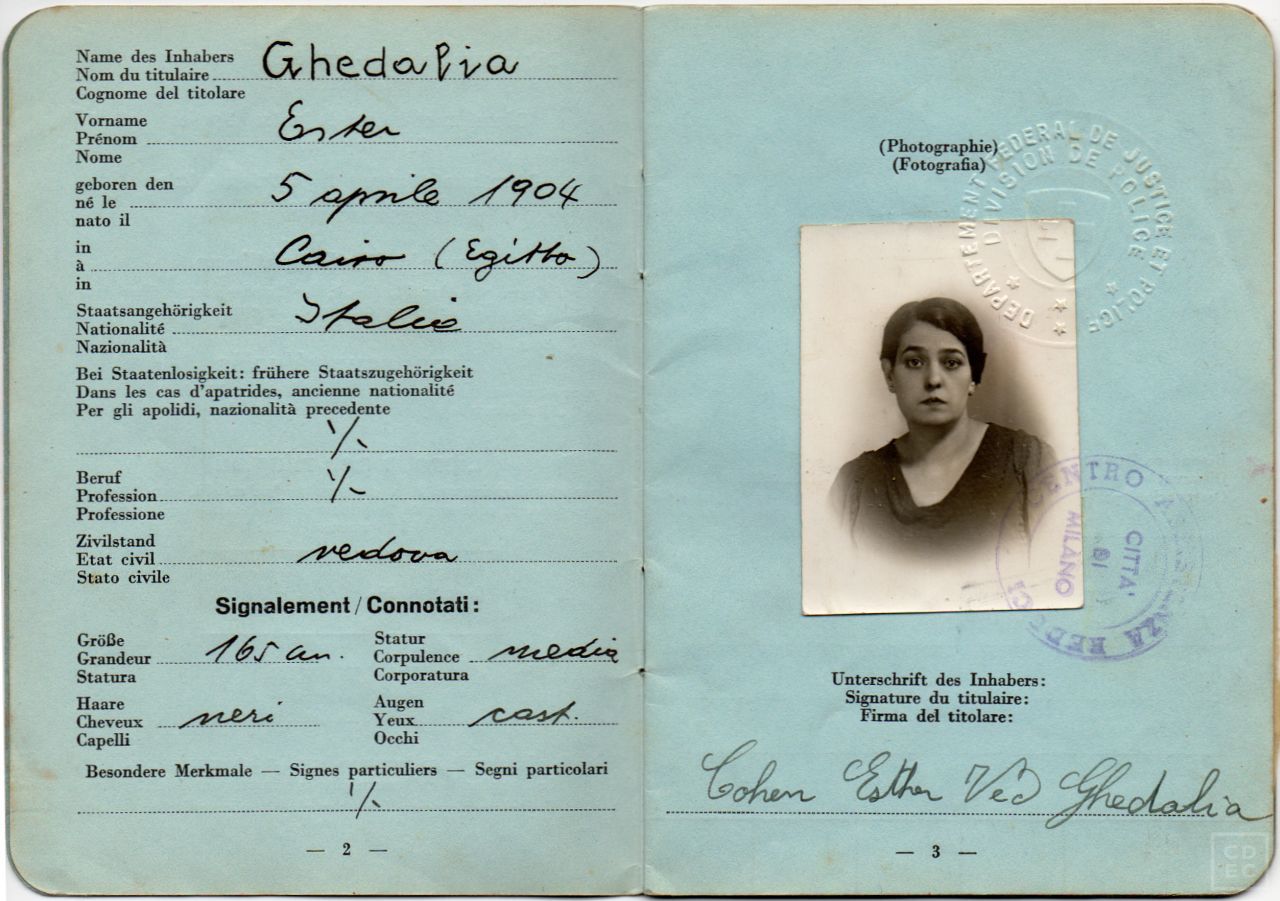 Name des Inhabers
Nom du titulaire Ghedalia
Cognome del titolare
Vorname
Prénom Ester
Nome
geboren den
né le 5 aprile 1904
nato il
in
à Cairo (Egitto)
in
Staatsangehörigkeit
Nationalité Italia
Nazionalità
Bei Staatenlosigkeit: frühere Staatszugehörigkeit
Dans les cas d'apatrides, ancienne nationalité
Per gli apolidi, nazionalità precedente
./.
Beruf
Profession ./.
Professione
Zivilstand
Etat civil vedova
Stato civile
Signalement / Connotati:
Größe
Grandeur 165 cm.
Statura
Statur
Corpulence media
Corporatura
Haare
Cheveux neri
Capelli
Augen
Yeux cast.
Occhi
Besondere Merkmale — Signes particuliers — Segni particolari
./.
— 2 —
(Photographie)
(Fotografia)
DEPARTEMENT FEDERAL DE JUSTICE ET POLICE
DIVISION DE POLICE
CENTRO
REDUCI
CITTA'
DI
MILANO
Unterschrift des Inhabers:
Signature du titulaire:
Firma del titolare:
Cohen Esther Ved Ghedalia
— 3 —
CD
EC